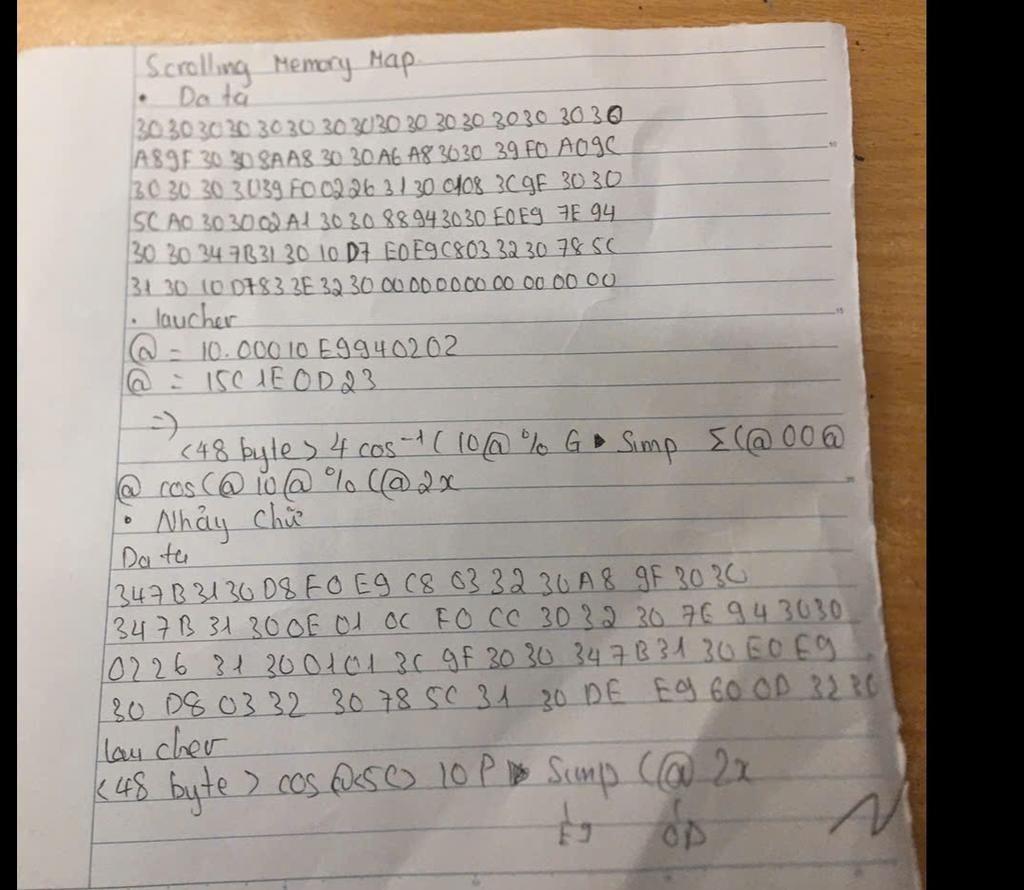 Scrolling Memory Map.
• Data
30 30 30 30 30 30 30 30 30 30 30 30 30 30 30 30
A8 9F 30 30 8A A8 30 30 A6 A8 30 30 39 F0 A0 9C
30 30 30 30 39 F0 02 26 31 30 01 08 3C 9F 30 30
5C A0 30 30 02 A1 30 30 88 94 30 30 E0 E9 7E 94
30 30 34 7B 31 30 10 D7 E0 E9 C8 03 32 30 78 5C
31 30 10 D7 83 3E 32 30 00 00 00 00 00 00 00 00
• laucher
@ = 10.00010E9940202
@ = 15C1E0D23
=>
<48 byte> 4 cos⁻¹( 10@ % G ▸ Simp Σ(@ 00@
@ cos(@ 10@ % (@ 2x
• Nhảy chữ
Data
34 7B 31 30 D8 F0 E9 C8 03 32 30 A8 9F 30 30
34 7B 31 30 0E 01 0C F0 CC 30 32 30 7E 94 30 30
02 26 31 30 01 01 3C 9F 30 30 34 7B 31 30 E0 E9
30 D8 03 32 30 78 5C 31 30 DE E9 60 0D 32 30
laucher
<48 byte> cos @<5C> 10 P ▸ Simp (@ 2x
E9 0D